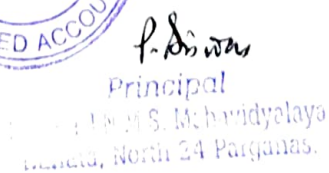 ED ACCOU
P. Biswas
Principal
S. Mahavidyalaya
North 24 Parganas.